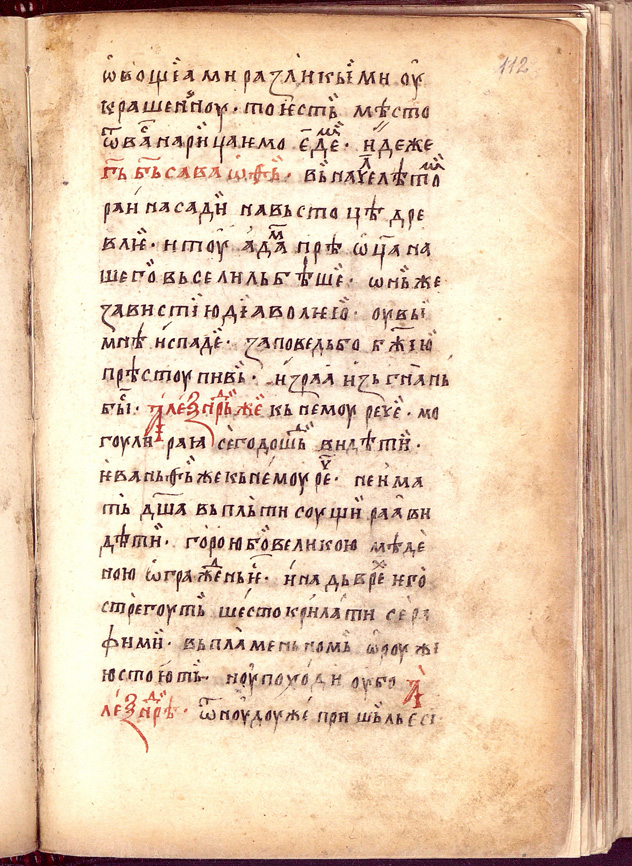 112
ѡвощїамиразликыими оу
крашенноу · тоиесть мѣсто
ѿваⷭ҇нарицаимо едемⷨ · идеже
г҃ь б҃ьсаваѡѳь · вьначелѣтомⷨ
раи насади навьстоцѣ дре
влѥ · итоу адаⷨ прѣ ѡц҃а на
шегѡ вьселильбѣше · ѡньже
завистїюдїаволнею · оувы
мнѣ испаде · заповедьбо б҃жїю
прѣстоупивь · ираꙗ изьгнань
бы · алеѯаⷩдрьже кьнемоу рече · мо
гоули раꙗ сегодошⷣь видѣти ·
ѥваньѳьжекьнемоуре҇ · неима
ть дш҃а вьпльти соущи раꙗви
дѣти · гороюбовеликою мѣде
ною ѡгражⷣеньѥ · инадьврⷯе него
стрегоуть шестокрилати сера
фими · вьпламеньномь ѡроужи
юстоють · ноупоходи оубо а
леѯаⷩдре · ѿноудоуже пришьльеси